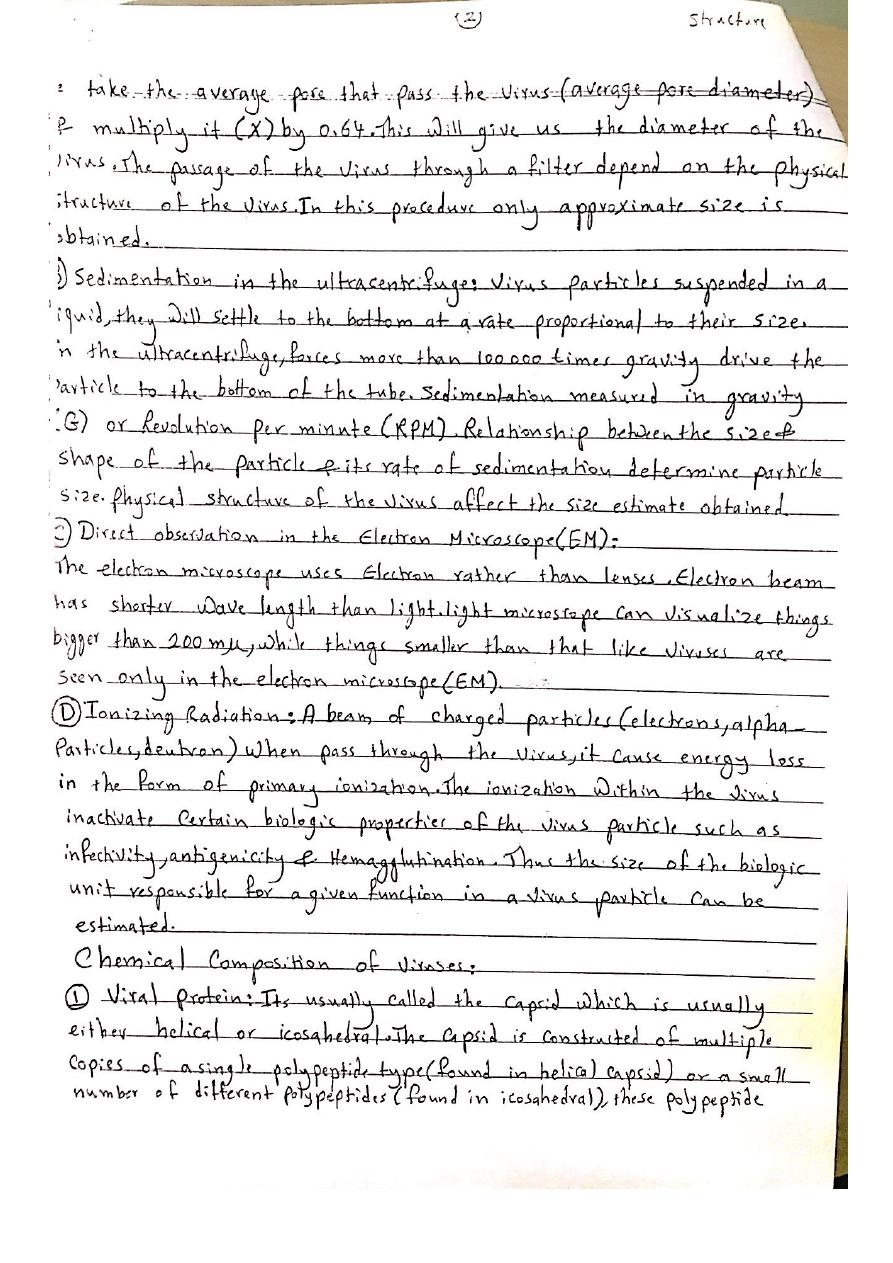 (2)
Structure
take the average pore that pass the virus (average pore diameter)
& multiply it (X) by 0.64. This will give us the diameter of the
virus. The passage of the virus through a filter depend on the physical
structure of the virus. In this procedure only approximate size is
obtained.
) Sedimentation in the ultracentrifuge: Virus particles suspended in a
liquid, they will settle to the bottom at a rate proportional to their size.
in the ultracentrifuge, forces more than 100 000 times gravity drive the
Particle to the bottom of the tube. Sedimentation measured in gravity
(G) or Revolution Per minute (RPM). Relationship between the size &
shape of the particle & its rate of sedimentation determine particle
size. Physical structure of the virus affect the size estimate obtained.
) Direct observation in the Electron Microscope (EM):-
The electron microscope uses Electron rather than lenses. Electron beam
has shorter wave length than light. light microscope can visualize things
bigger than 200 mμ, while things smaller than that like viruses are
seen only in the electron microscope (EM).
(D) Ionizing Radiation: A beam of charged particles (electrons, alpha-
Particles, deutron) when pass through the virus, it cause energy loss
in the form of primary ionization. The ionization within the virus
inactivate certain biologic properties of the virus particle such as
infectivity, antigenicity & Hemagglutination. Thus the size of the biologic
unit responsible for a given function in a virus particle can be
estimated.
Chemical Composition of Viruses:
(1) Viral protein: Its usually called the capsid which is usually
either helical or icosahedral. The capsid is constructed of multiple
copies of a single polypeptide type (found in helical capsid) or a small
number of different polypeptides (found in icosahedral), these polypeptide